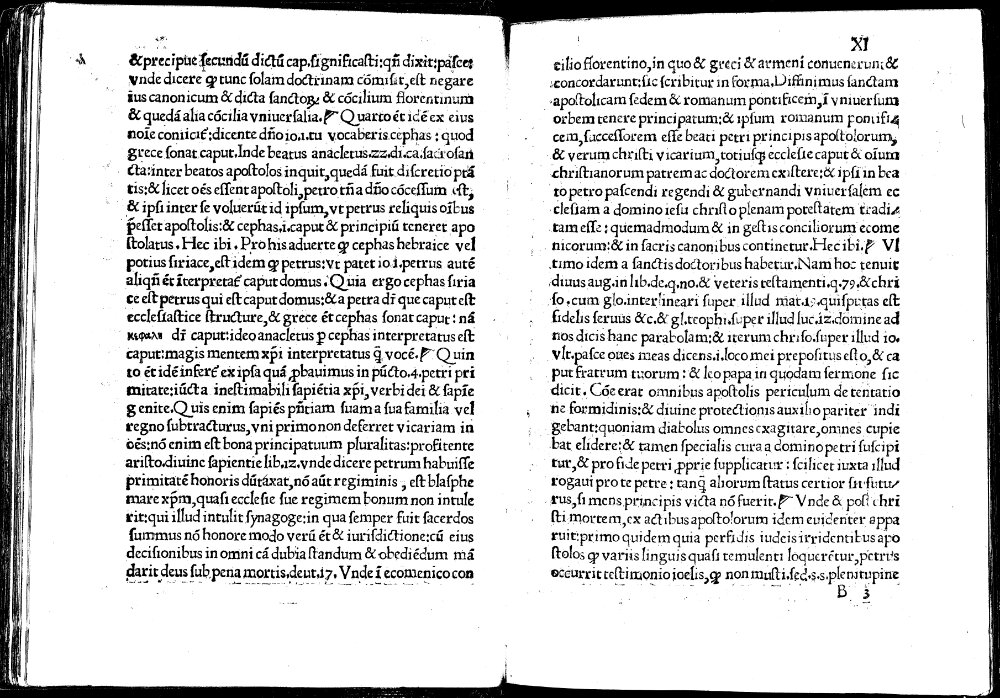 & precipue secundũ dictũ cap. significasti: qñ dixit: pasce:
vnde dicere ꝙ tunc solam doctrinam cõmisit, est negare
ius canonicum & dicta sanctoꝝ & cõcilium florentinum
& quedã alia cõcilia vniuersalia. ¶ Quarto ẽt idẽ ex eius
noĩe coniicit᷒: dicente dño io. i. tu vocaberis cephas: quod
grece sonat caput. Inde beatus anacletus. zz. di. ca. sacrosan
cta: inter beatos apostolos inquit, quedã fuit discretio ptã
tis: & licet oẽs essent apostoli, petro tñ a dño cõcessum est,
& ipsi inter se voluerũt id ipsum, vt petrus reliquis oĩbus
p̃esset apostolis: & cephas .i. caput & principiũ teneret apo
stolatus. Hec ibi. Pro his aduerte ꝙ cephas hebraice vel
potius siriace, est idem ꝙ petrus: vt patet io i. petrus autẽ
aliqñ ẽt ĩterpretat᷒ caput domus. Quia ergo cephas siria
ce est petrus qui est caput domus: & a petra dr̃ que caput est
ecclesiastice structure, & grece ẽt cephas sonat caput: nã
κιφαλι dr̃ caput: ideo anacletus p cephas interpretatus est
caput: magis mentem xp̃i interpretatus q̃ vocẽ. ¶ Quin
to ẽt idẽ infert᷒ ex ipsa quã ꝓbauimus in pũcto. 4. petri pri
mitate: iũcta inestimabili sapiẽtia xp̃i, verbi dei & sapiẽ
g enite. Quis enim sapiẽs pñtiam suam a sua familia vel
regno subtracturus, vni primo non deferret vicariam in
oẽs: nõ enim est bona principatuum pluralitas: profitente
aristo. diuine sapientie lib. iz. vnde dicere petrum habuisse
primitatẽ honoris dũtãxat, nõ aũt regiminis, est blasphe
mare xp̃m, quasi ecclesie sue regimem bonum non intule
rit: qui illud intulit synagoge: in qua semper fuit sacerdos
summus nõ honore modo verũ ẽt & iurisdictione: cũ eius
decisionibus in omni cã dubia standum & obediẽdum mã
darit deus sub pena mortis. deut. 17. Vnde ĩ ecomenico con
XI
cilio florentino, in quo & greci & armeni conuenerunt &
concordarunt: sic scribitur in forma. Diffinimus sanctam
apostolicam sedem & romanum pontificem, ĩ vniuersum
orbem tenere principatum: & ipsum romanum pontifi
cem, successorem esse beati petri principis apostolorum,
& verum christi vicarium, totiusq; ecclesie caput & oĩum
christianorum patrem ac doctorem existere: & ipsi in bea
to petro pascendi regendi & gubernandi vniuersalem ec
clesiam a domino iesu christo plenam potestatem tradi
tam esse: quemadmodum & in gestis conciliorum ecome
nicorum: & in sacris canonibus continetur. Hec ibi. ¶ Vl
timo idem a sanctis doctoribus habetur. Nam hoc tenuit
diuus aug. in lib. de. q. no. & veteris testamenti. q. 79. & chri
so. cum glo. interlineari super illud mat. 19. quisputas est
fidelis seruus &c. & gl. teophi. super illud luc. iz. domine ad
nos dicis hanc parabolam: & iterum chriso. super illud io.
vlt. pasce oues meas dicens. i. loco mei prepositus esto, & ca
put fratrum tuorum: & leo papa in quodam sermone sic
dicit. Cõe erat omnibus apostolis periculum de tentatio
ne formidinis: & diuine protectionis auxilio pariter indi
gebant: quoniam diabolus omnes exagitare, omnes cupie
bat elidere: & tamen specialis cura a domino petri suscipi
tur, & pro fide petri ꝓprie supplicatur: scilicet iuxta illud
rogaui pro te petre: tanq̃ aliorum status certior sit futu
rus, si mens principis victa nõ fuerit. ¶ Vnde & post chri
sti mortem, ex actibus apostolorum idem euidenter appa
ruit: primo quidem quia perfidis iudeis irridentibus apo
stolos ꝙ variis linguis quasi temulenti loquerẽtur, petrus
occurrit testimonio joelis, ꝙ non musti. sed. s. s. plenitupine
B 3